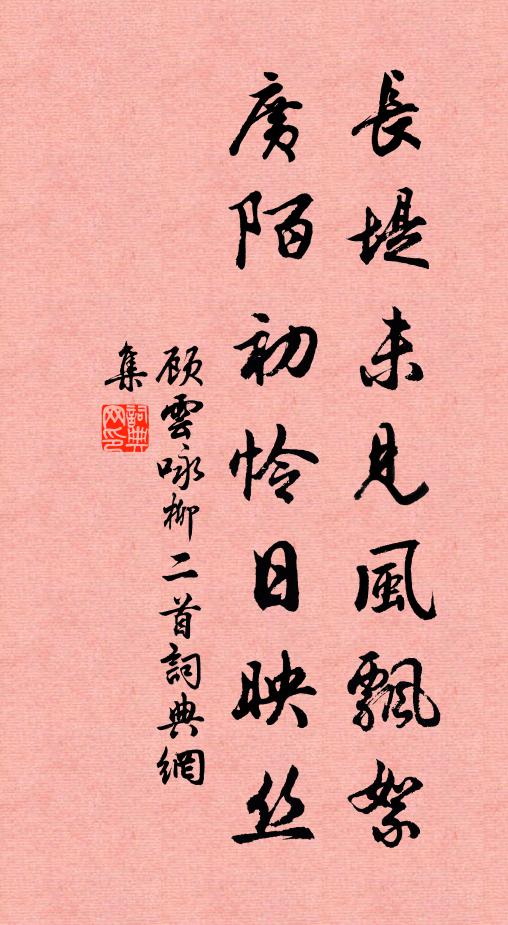 長堤未見風飄絮
廣陌初怜日映丝
顾雲咏柳二首詞典網
集
詞典
网印